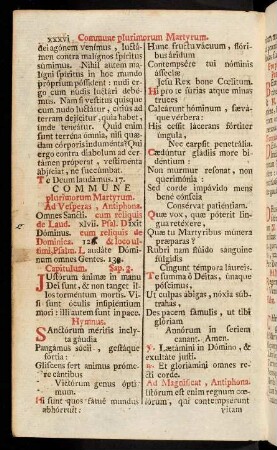 xxxvi. Commune plurimorum Martyrum.
dei agónem venímus, luctá-
men contra malígnos spíritus
súmimus. Nihil autem ma-
lígni spíritus in hoc mundo
próprium póssident: nudi er-
go cum nudis luctári debé-
mus. Nam si vestítus quisque
cum nudo luctátur, cítiùs ad
terram dejícitur, quia habet,
unde teneátur. Quid enim
sunt terréna ómnia, nisi quæ-
dam córporis induménta? Qui
ergo contra diábolum ad cer-
támen próperat, vestiménta
abjíciat, ne succúmbat.
Te Deum laudámus. 17.
COMMUNE
plurimorum Martyrum.
Ad Vesperas, Antiphona.
Omnes Sancti. cum reliquis
de Laud. xlvij. Psal. Dixit
Dóminus. cum reliquis de
Dominica. & loco ul-
timi, Psalm. Laudáte Dómi-
num omnes Gentes. 139.
Capitulum. Sap. 3.
Justórum ánimæ in manu
Dei sunt, & non tanget il-
los torméntum mortis. Vi-
si sunt óculis insipiéntium
mori: illi autem sunt in pace.
Hymnus.
Sanctórum méritis ínclyta
gáudia
Pangámus sócii, gestáque
fórtia:
Gliscens fert ánimus próme-
re cántibus
Victórum genus ópti-
mum.
Hi sunt quos fatuè mundus
abhórruit:
Hunc fructu vácuum, flóri-
bus áridum
Contempsére tui nóminis
ásseclæ
Jesu Rex bone Cœlitum.
Hi pro te fúrias atque minas
truces
Calcárunt hóminum, sævá-
que vérbera:
His cessit lácerans fórtiter
úngula,
Nec carpsit penetrália.
Cædúntur gládiis more bi-
déntium:
Non murmur résonat, non
querimónia:
Sed corde impávido mens
bene cónscia
Consérvat patiéntiam.
Quæ vox, quæ póterit lin-
gua retéxere,
Quæ tu Martyribus múnera
præparas?
Rubri nam flúido sánguine
fúlgidis
Cingunt témpora láureis.
Te summa ô Déitas, únaque
póscimus,
Ut culpas ábigas, nóxia súb-
trahas,
Des pacem fámulis, ut tibi
glóriam
Annórum in sériem
canant. Amen.
℣. Lætámini in Dómino, &
exultáte justi.
℟. Et gloriámini omnes re-
cti corde.
Ad Magnificat, Antiphona.
Istórum est enim regnum cœ-
lórum, qui contempsérunt
vitam